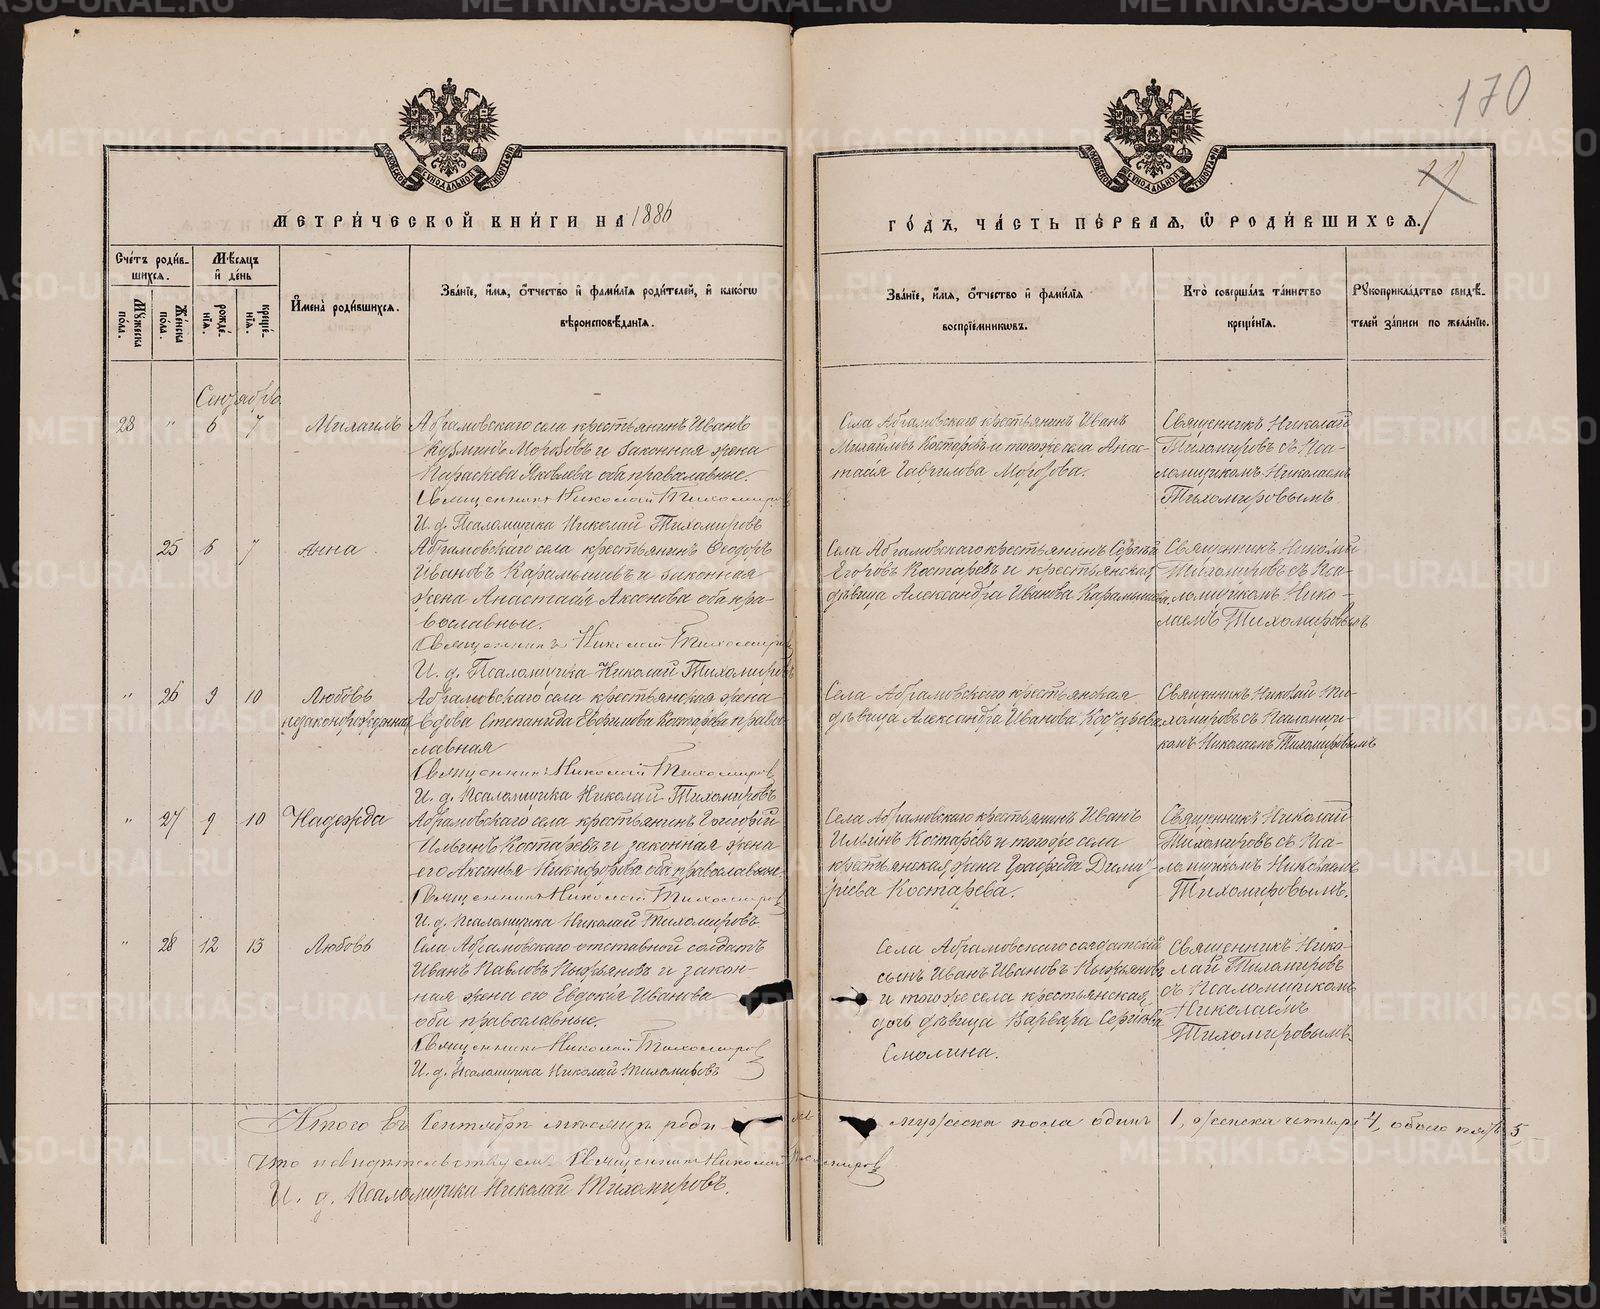 170
МОСКОВСКОЙ СѴНОДАЛЬНОЙ ТИПОГРАФІИ
МОСКОВСКОЙ СѴНОДАЛЬНОЙ ТИПОГРАФІИ
МЕТРИ́ЧЕСКОЙ КНИ́ГИ НА 1886
ГО́ДЪ, ЧА́СТЬ ПЕ́РВАЯ, Ѡ҆ РОДИ́ВШИХСЯ.
Сче́тъ роди́в-
шихся.
Мꙋ́жеска по́ла.
Же́нска по́ла.
Мѣ́сяцъ
и҆ де́нь
рожде́-
нїя.
креще́-
нїя.
И҆мена̀ роди́вшихся.
Зва́нїе, и҆́мя, ѻ҆́тчество и҆ фами́лїя роди́телей, и҆ како́гѡ
вѣроисповѣ́данїя.
Зва́нїе, и҆́мя, ѻ҆́тчество и҆ фами́лїя
воспрїе́мникѡвъ.
Кто̀ соверша́лъ та́инство
креще́нїя.
Рꙋкоприкла́дство свидѣ́-
телей за́писи по жела́нїю.
Сентябрь
28 " 6 7 Михаилъ
Абрамовскаго села крестьянинъ Иванъ
Кузминъ Морозовъ и законная жена
Параскева Яковлева оба православные.
Священникъ Николай Тихомировъ
И. д. Псаломщика Николай Тихомировъ
Села Абрамовскаго крестьянинъ Иванъ
Михайловъ Костаревъ и тогоже села Анас-
тасія Гаврилова Морозова.
Священникъ Николай
Тихомировъ съ Пса-
ломщикомъ Николаемъ
Тихомировымъ
25 6 7 Анна
Абрамовскаго села крестьянинъ Ѳеодоръ
Ивановъ Карамышевъ и законная
жена Анастасія Аксенова оба пра-
вославные.
Священникъ Николай Тихомировъ
И. д. Псаломщика Николай Тихомировъ
Села Абрамовскаго крестьянинъ Сергѣй
Егоровъ Костаревъ и крестьянская
дѣвица Александра Иванова Карамышева
Священникъ Николай
Тихомировъ съ Пса-
ломщикомъ Нико-
лаемъ Тихомировымъ
" 26 9 10 Любовь
незаконнорожденная
Абрамовскаго села крестьянская жена
вдова Степанида Евфимова Костарева право-
славная
Священникъ Николай Тихомировъ
И. д. Псаломщика Николай Тихомировъ
Села Абрамовскаго крестьянская
дѣвица Александра Иванова Костарева
Священникъ Николай Ти-
хомировъ съ Псаломщи-
комъ Николаемъ Тихомировымъ
" 27 9 10 Надежда
Абрамовскаго села крестьянинъ Григорій
Ильинъ Костаревъ и законная жена
его Аксинья Никифорова оба православные
Священникъ Николай Тихомировъ
И. д. Псаломщика Николай Тихомировъ
Села Абрамовскаго крестьянинъ Иванъ
Ильинъ Костаревъ и тогоже села
крестьянская жена Димит-
ріева Костарева.
Священникъ Николай
Тихомировъ съ Пса-
ломщикомъ Николаемъ
Тихомировымъ.
" 28 12 13 Любовь
Села Абрамовскаго отставной солдатъ
Иванъ Павловъ Кыжьяновъ и закон-
ная жена его Евдокія Иванова
оба православные.
Священникъ Николай Тихомировъ
И. д. Псаломщика Николай Тихомировъ
Села Абрамовскаго солдатскій
сынъ Иванъ Ивановъ Кыжьяновъ
и тогоже села крестьянская
дочь дѣвица Варвара Сергѣева
Смолина.
Священникъ Нико-
лай Тихомировъ
съ Псаломщикомъ
Николаемъ
Тихомировымъ.
Итого въ Сентябрѣ мѣсяцѣ роди мужеска пола одинъ 1, женска четыре 4, обоего пять 5
Что и свидѣтельствуемъ Священникъ Николай Тихомировъ
И. д. Псаломщика Николай Тихомировъ.
METRIKI.GASO-URAL.RU